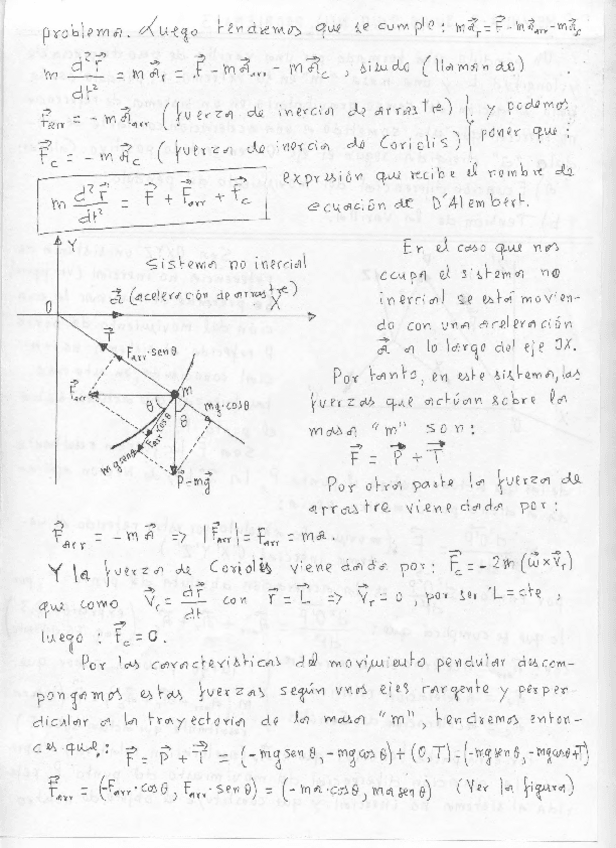 problema. Luego tendremos que se cumple: m a⃗_r = F⃗ - m a⃗_arr - m a⃗_c
m d²r⃗/dt² = m a⃗_r = F⃗ - m a⃗_arr - m a⃗_c , siendo (llamando)
F⃗_arr = - m a⃗_arr (fuerza de inercia de arrastre) | y podemos
F⃗_c = - m a⃗_c (fuerza de inercia de Coriolis) | poner que:
m d²r⃗/dt² = F⃗ + F⃗_arr + F⃗_c
expresión que recibe el nombre de
ecuación de D'Alembert.
Y
Sistema no inercial
a⃗ (aceleración de arrastre)
O
X
T⃗
F_arr·senθ
F⃗_arr
m
θ
θ
mg·cosθ
F_arr cosθ
mg senθ
P⃗=mg
En el caso que nos
ocupa el sistema no
inercial se está movien-
do con una aceleración
a⃗ a lo largo del eje OX.
Por tanto, en este sistema, las
fuerzas que actúan sobre la
masa "m" son:
F⃗ = P⃗ + T⃗
Por otra parte la fuerza de
arrastre viene dada por:
F⃗_arr = - m a⃗ => |F⃗_arr| = F_arr = ma.
Y la fuerza de Coriolis viene dada por: F⃗_c = - 2m (ω⃗ x v⃗_r)
que como v⃗_r = dr⃗/dt con r⃗ = L⃗ => v⃗_r = 0, por ser L = cte,
luego: F⃗_c = 0.
Por las características del movimiento pendular descom-
pongamos estas fuerzas según unos ejes tangente y perpen-
dicular a la trayectoria de la masa "m", tendremos enton-
ces que: F⃗ = P⃗ + T⃗ = (-mg senθ, -mg cosθ) + (0, T) = (-mg senθ, -mg cosθ + T)
F⃗_arr = (-F_arr·cosθ, F_arr·senθ) = (-ma·cosθ, ma senθ) (Ver la figura)